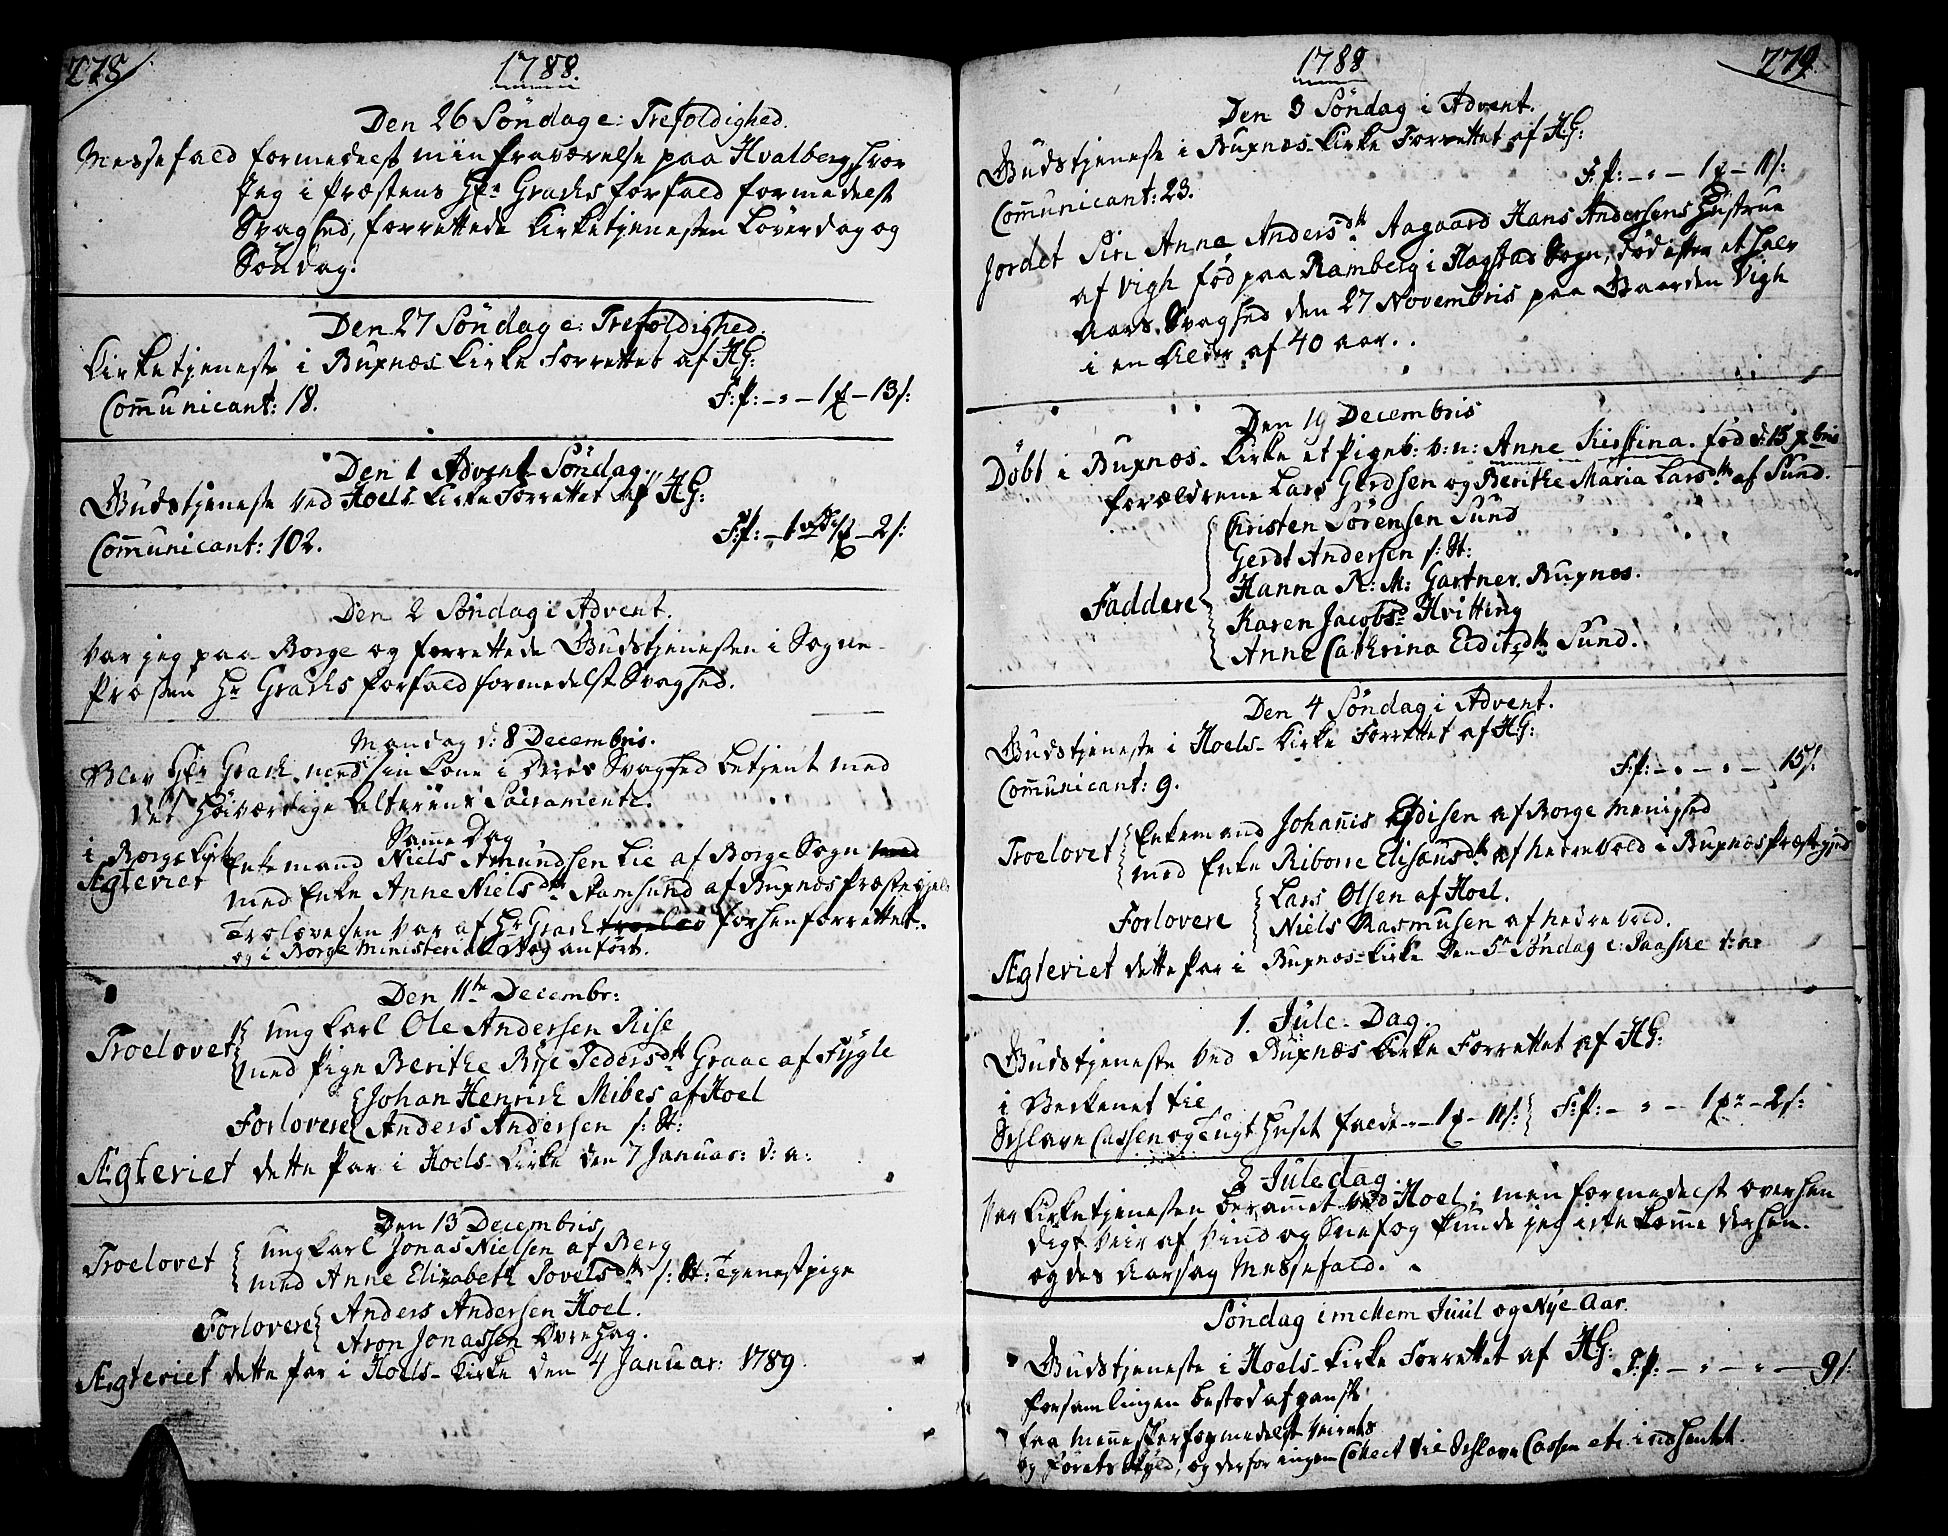 278
1788.
Den 26 Søndag e: Trefoldighed.
Messefald formedelst min fraværelse paa Hvalberg hvor
jeg i Præstens Hr. Grachs forfald formedelst
Svaghed, forrettede Kirketjenesten Løverdag og
Søndag.
Den 27 Søndag e: Trefoldighed.
Kirketjeneste i Buxnæs Kirke Forrettet af HG:
Communicant: 18.
F:P: – " – 1 – 13 s:
Den 1 Advent Søndag.
Gudstjeneste ved Hoels Kirke Forrettet af HG:
Communicant: 102.
F:P: – 1 – 2 s:
Den 2 Søndag i Advent.
Var jeg paa Borge og forrettede Gudstjenesten i Sogne-
Præsten Hr Grachs forfald formedelst Svaghed.
Mandag d: 8 Decembris.
Blev Hr Grach med sin Kone i deres Svaghed betjent med
det høiværdige Alterens Sacramente.
Samme Dag
i Borge Kirke Enkemand Niels Amundsen Lie af Borge Sogn med
Ægteviet med Enke Anne Nielsdtr Stamsund af Buxnæs Præstegjeld
Trolovelsen var af Hr Grach forhen forrettet.
og i Borge Ministerial Bog anført.
Den 11te Decembr:
Troelovet Ungkarl Ole Andersen Rise
med Pige Berithe Rye Pedersdtr Graae af Fygle
Johan Henrich Mibes af Hoel
Forlovere Anders Andersen s: St:
Ægteviet dette Par i Hoels Kirke den 7 Januar: d: a:
Den 13 Decembris
Troelovet Ungkarl Jonas Nielsen af Berg
med Anne Elizabeth Povelsdtr s: St: Tjenestpige
Forlovere Anders Andersen Hoel.
Aron Jonassen Øvrehag.
Ægteviet dette par i Hoels Kirke den 4 Januar: 1789.
279
1788
Den 3 Søndag i Advent.
Gudstjeneste i Buxnæs Kirke Forrettet af HG:
F:P: – " – 1 – 11 s:
Communicant: 23.
Jordet Siri Anna Andersdtr Aagaard Hans Andersens Hustrue
af Vigh fød paa Ramberg i Flagstad Sogn, død efter et halv
Aars Svaghed den 27 Novembris paa Gaarden Vigh
i en Alder af 40 aar.
Den 19 Decembris
Døbt i Buxnæs Kirke et Pigeb: v: n: Anne Kirstina. fød d: 15 Xbris
forældrene Lars Gerdsen og Berithe Maria Larsdtr af Sund.
Christen Sørensen Sund
Gerdt Andersen s: St:
Faddere Hanna R: M: Gartner. Buxnæs.
Karen Jacobsd Hvitting
Anne Cathrina Ediitsdtr Sund.
Den 4 Søndag i Advent.
Gudstjeneste i Hoels Kirke Forrettet af HG:
F:P: – " – " – 15 s
Communicant: 9.
Troelovet Enkemand Johannis Edisen af Borge Menighed
med Enke Riborre Elisæusdtr af Nedrevold i Buxnæs Præstegjeld
Lars Olsen af Hoel.
Forlovere Niels Rasmusen af Nedrevold.
Ægteviet dette Par i Buxnæs Kirke den 5te Søndag e: Paaske d: a:
1. Jule-Dag
Gudstjeneste ved Buxnæs Kirke Forrettet af HG:
i Bekkenet til
Schlave Cassen og Tugt Huset faldt – 1 – 11 s: F:P: – " – 1 – 2 s:
2 Juledag.
Var Kirketjenesten berammet ved Hoel; men formedelst overhen
digt Veir af Vind og Sneefog kunde jeg ikke komme derhen.
og des Aarsag Messefald.
Søndag imellem Juul og Nye Aar.
Gudstjeneste i Hoels Kirke Forrettet af HG: F:P: – " – " – 9 s:
Forsamlingen bestod af ganske
faa Mennesker formedelst Veirets
og Førets Skyld, og derfor ingen Collect til Schlave Cassen etc. indsamlet.